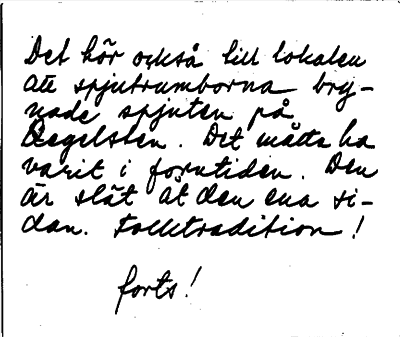 Det hör också till lokalen
att spjutrumborna bry-
nade spjuten på
Regelsten. Det måtte ha
varit i forntiden. Den
är slät åt den ena si-
dan. Folktradition!
forts!